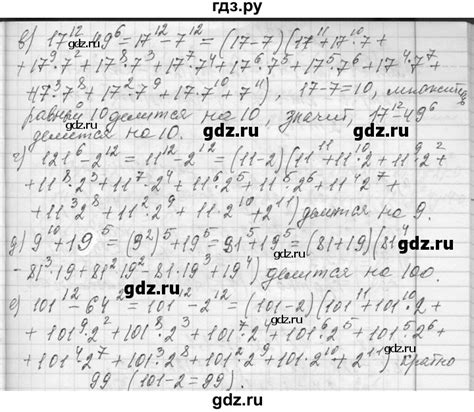 гдз.ру
в) 17¹² - 49⁶ = 17¹² - 7¹² = (17-7)(17¹¹ + 17¹⁰·7 +
+ 17⁹·7² + 17⁸·7³ + 17⁷·7⁴ + 17⁶·7⁵ + 17⁵·7⁶ + 17⁴·7⁷ +
+ 17³·7⁸ + 17²·7⁹ + 17·7¹⁰ + 7¹¹), 17-7=10, множитель
равный 10 делится на 10, значит, 17¹²-49⁶
делится на 10.
г) 121⁶ - 2¹² = 11¹² - 2¹² = (11-2)(11¹¹ + 11¹⁰·2 + 11⁹·2² +
+ 11⁸·2³ + 11⁷·2⁴ + 11⁶·2⁵ + 11⁵·2⁶ + 11⁴·2⁷ +
+ 11³·2⁸ + 11²·2⁹ + 11·2¹⁰ + 2¹¹) делится на 9.
д) 9¹⁰ + 19⁵ = (9²)⁵ + 19⁵ = 81⁵ + 19⁵ = (81+19)(81⁴ -
- 81³·19 + 81²·19² - 81·19³ + 19⁴) делится на 100.
е) 101¹² - 64² = 101¹² - 2¹² = (101-2)(101¹¹ + 101¹⁰·2 +
+ 101⁹·2² + 101⁸·2³ + 101⁷·2⁴ + 101⁶·2⁵ + 101⁵·2⁶ +
+ 101⁴·2⁷ + 101³·2⁸ + 101²·2⁹ + 101·2¹⁰ + 2¹¹) кратно
99 (101-2=99).
gdz.ru
gdz.ru
gdz.ru
gdz.ru
gdz.ru
gdz.ru
gdz.ru